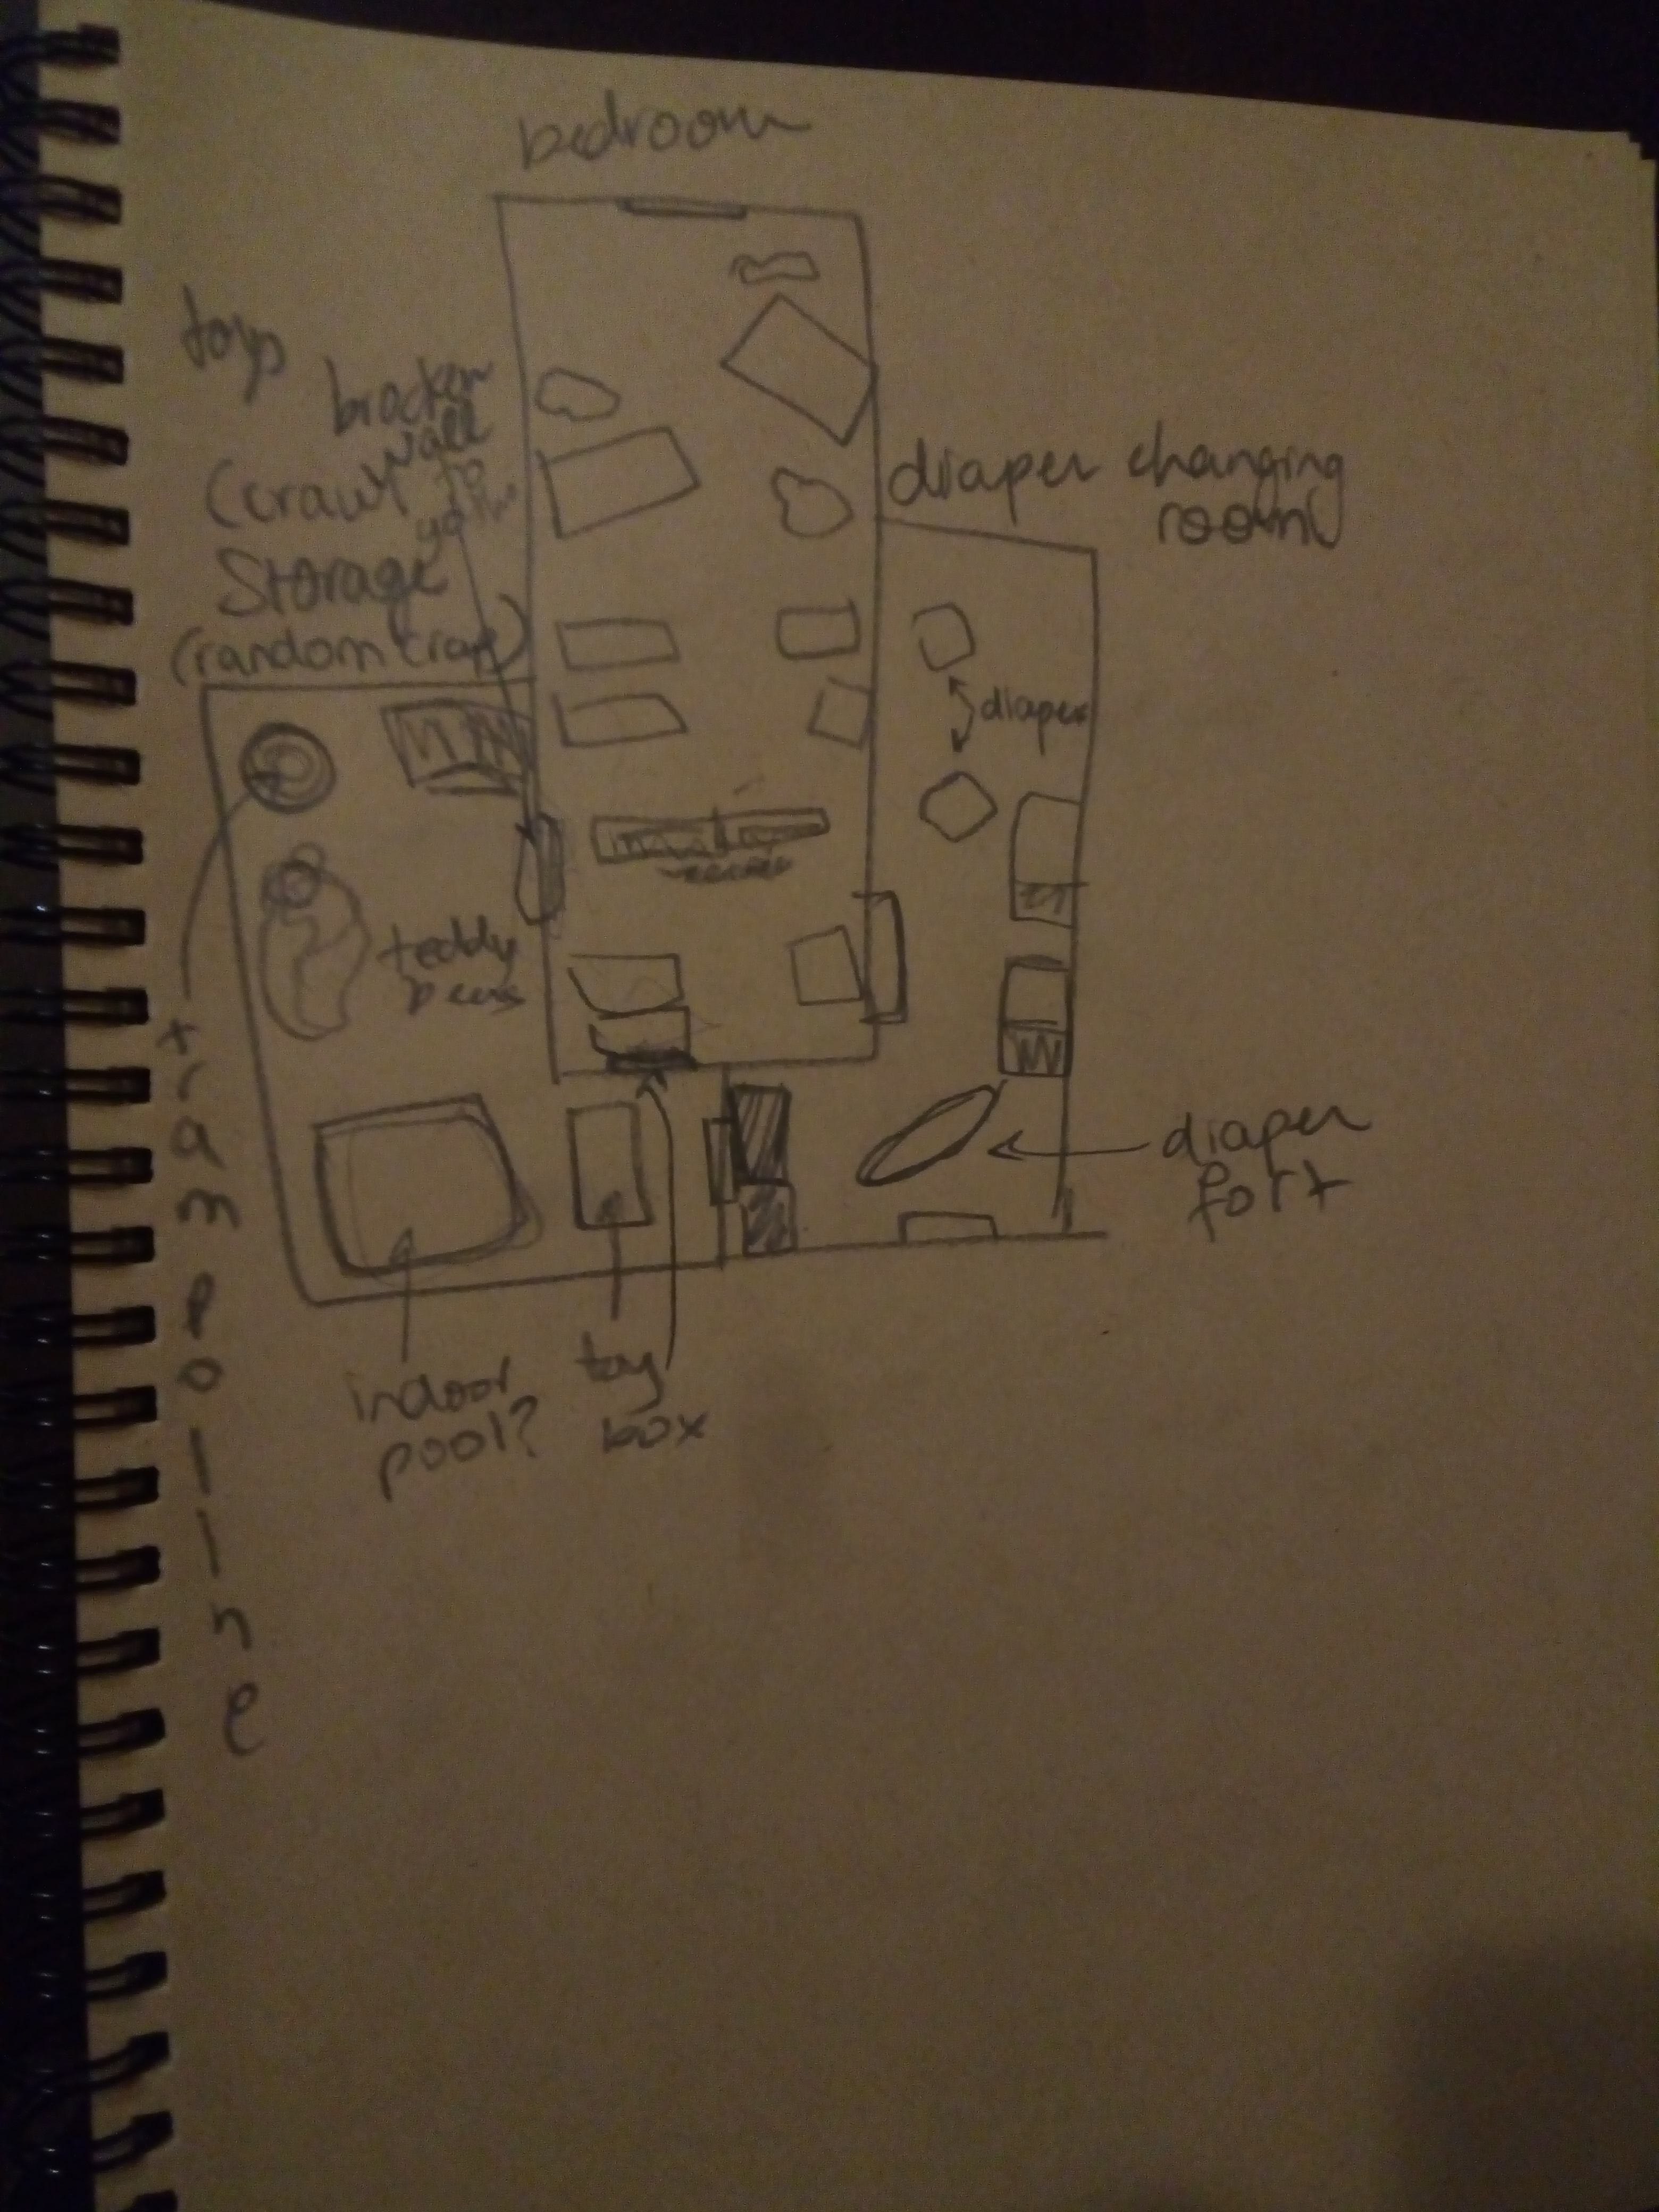 bedroom
toys
brocken
wall
to
(crawl
Storage
(random crap)
diaper changing
room
diaper
teddy
bears
trampoline
diaper
fort
indoor
pool?
toy
box